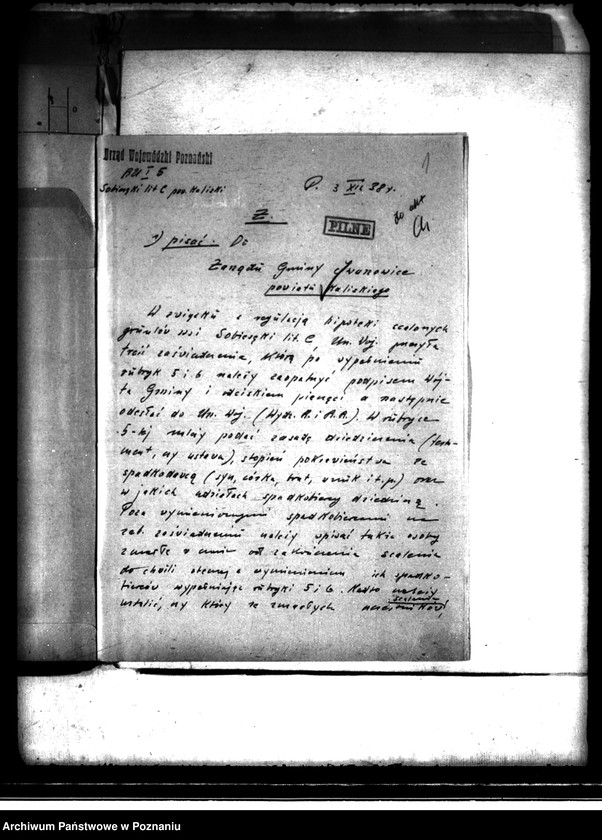 Urząd Wojewódzki Poznański
1
Sobiesęki lit C pow. Kaliski
P. 3 XII 38 r.
Z.
PILNE
do akt
1) pisać. Do
Zarządu Gminy Iwanowice
powiatu Kaliskiego
W związku z regulacją hipoteki scalonych
gruntów wsi Sobiesęki lit. C Urz. Woj. przesyła
treść zaświadczenia, którą po wypełnieniu
rubryk 5 i 6 należy zaopatrzyć podpisem Wój-
ta Gminy i odciskiem pieczęci a następnie
odesłać do Urz. Woj. (Wydz. R. i R.R.). W rubryce
5-tej należy podać zasadę dziedziczenia (testa-
ment, czy ustawa), stopień pokrewieństwa ze
spadkodawcą (syn, córka, brat, wnuk i t.p.) oraz
w jakich udziałach spadkobiercy dziedziczą.
Poza wymienionymi spadkobiercami na
zał. zaświadczeniu należy wpisać także osoby
zmarłe w czasie od zakończenia scalenia
do chwili obecnej z wymienieniem ich spadko-
bierców wypełniając rubryki 5 i 6. Nadto należy
scalenia
ustalić, czy który ze zmarłych
Archiwum Państwowe w Poznaniu